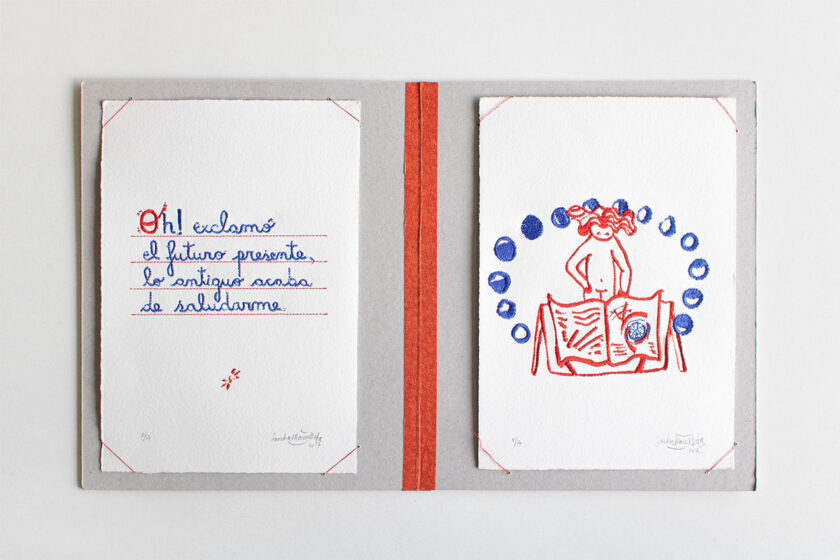 Oh! exclamó
el futuro presente,
lo antiguo acaba
de saludarme.
P/A
2017
P/A
2017